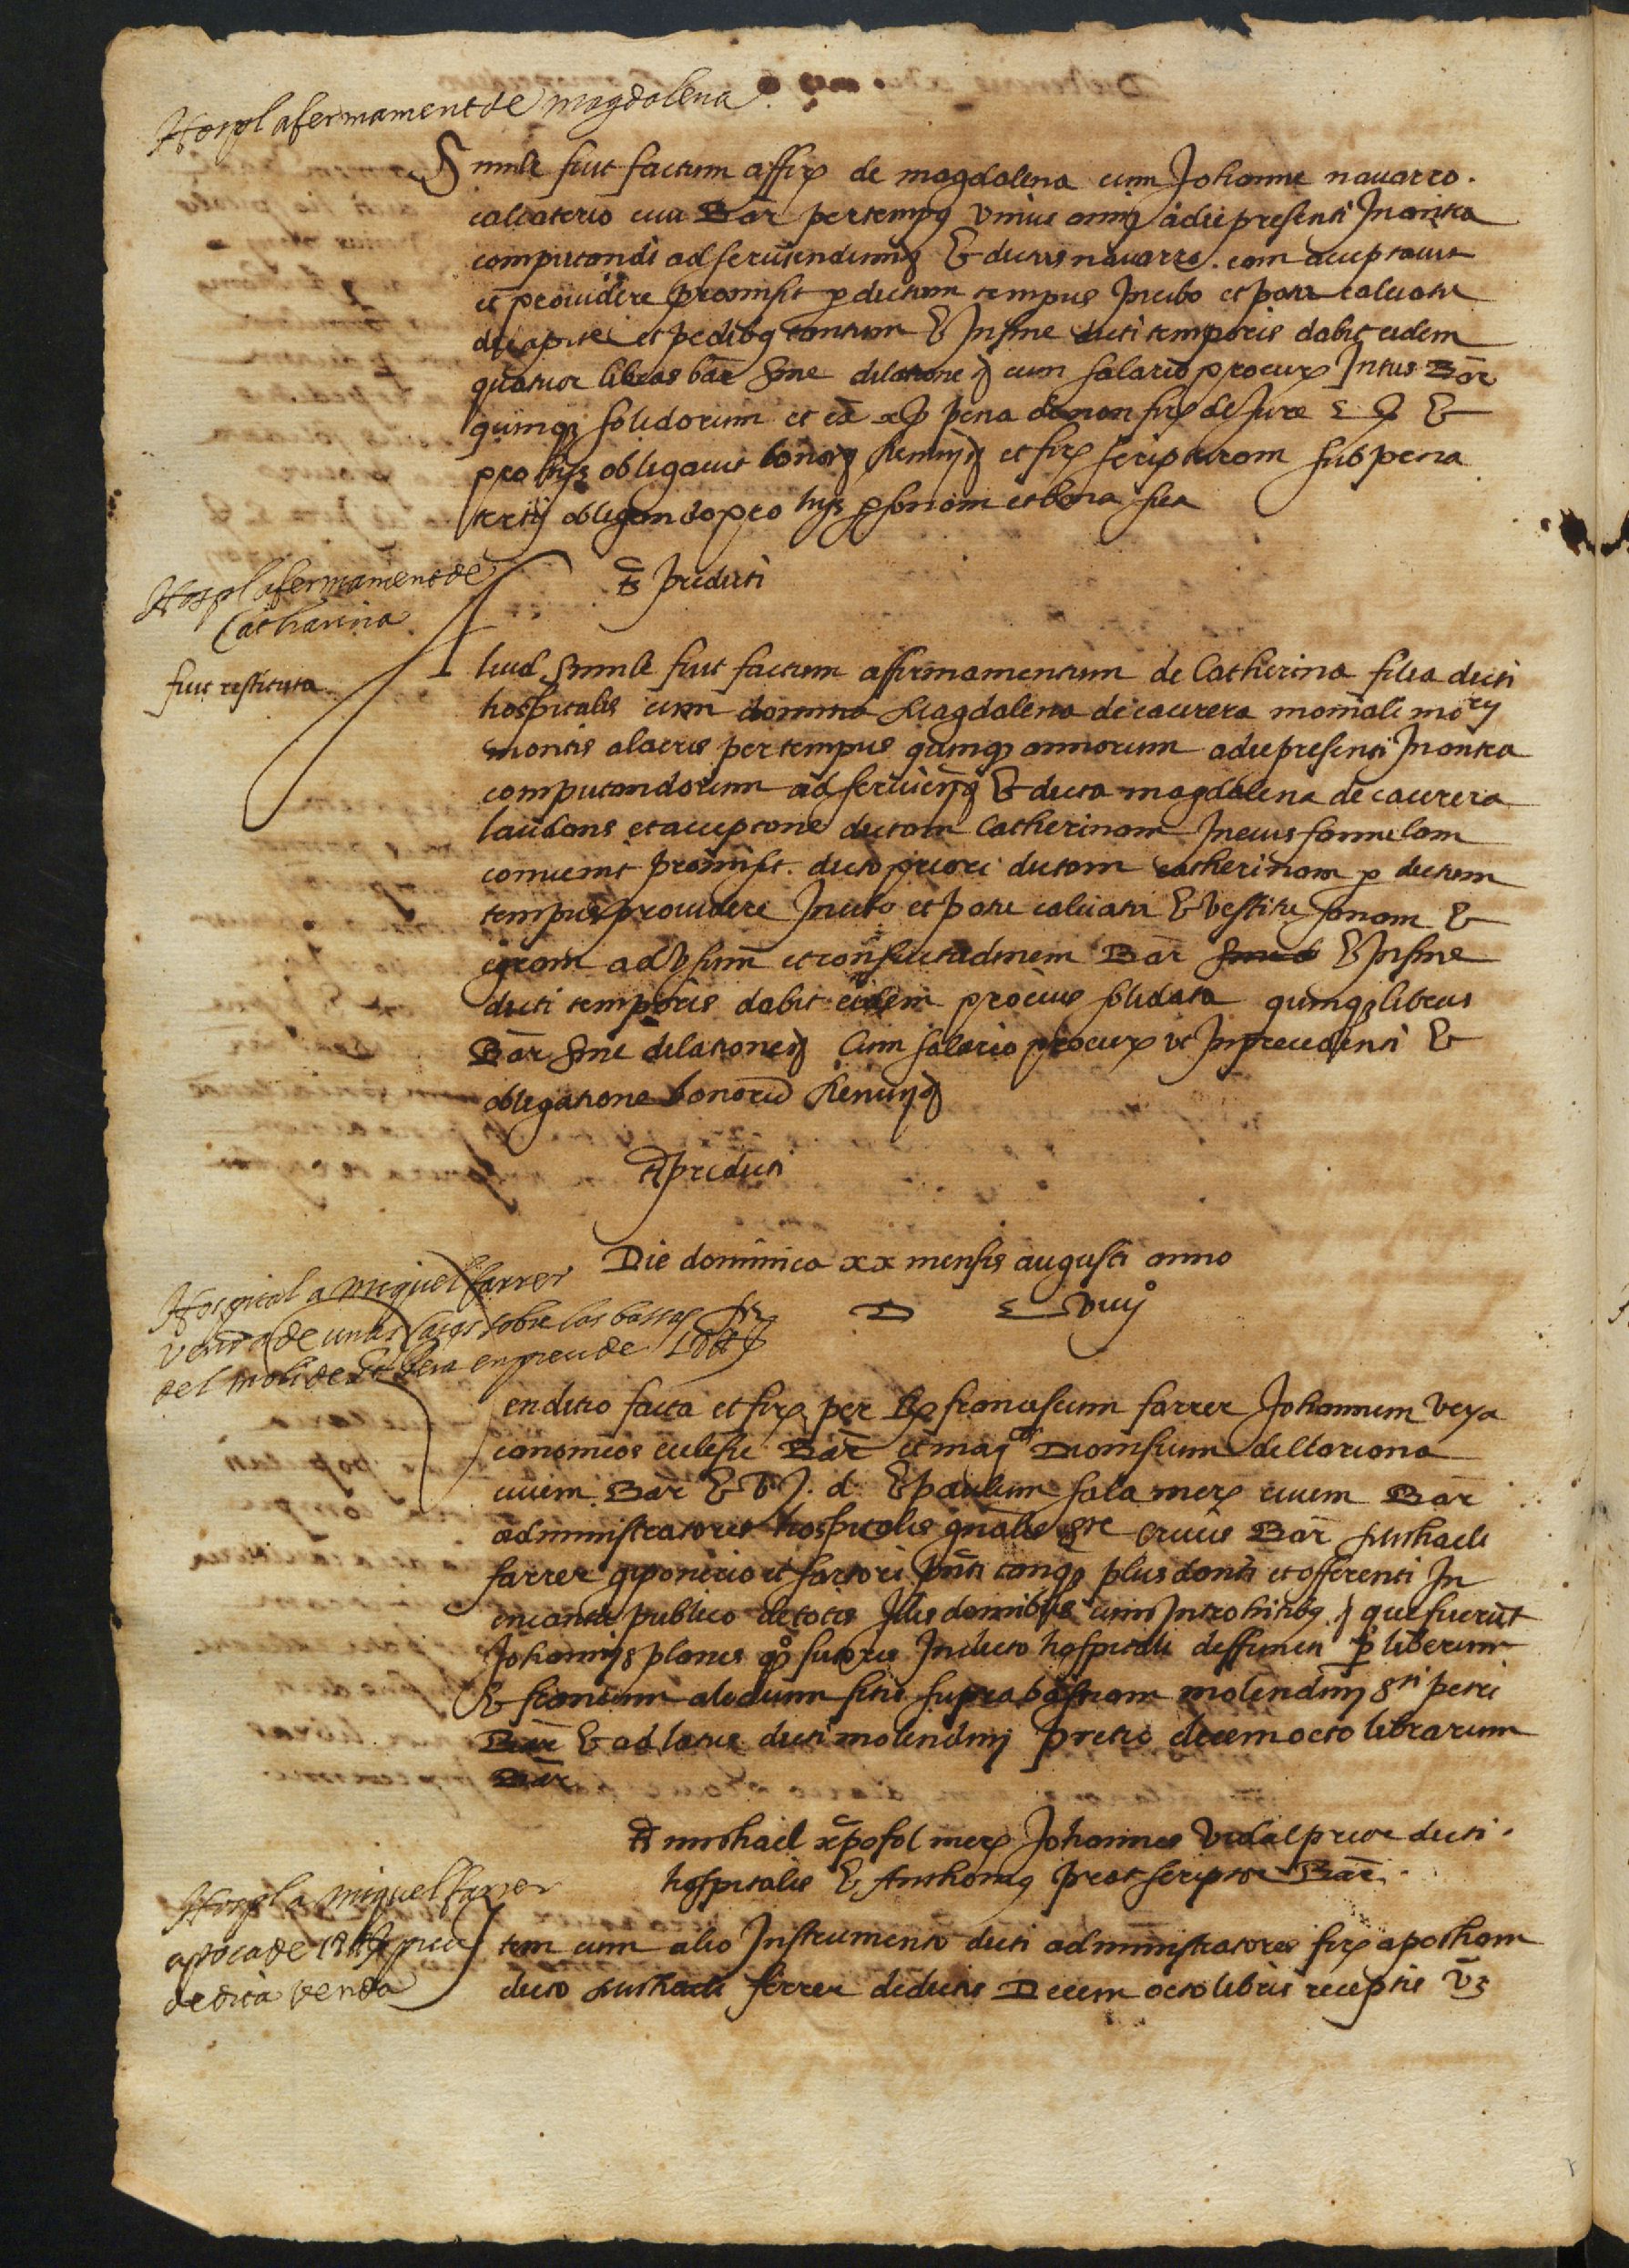 Hospl afermament de magdalena
Simile fuit factum affirm de magdalena cum Johanne nauarro
calcaterio ciui Bar per tempus vnius anni a die presenti Inantea
computandi ad seruiendum & dictus nauarro eam acceptauit
et prouidere promisit per dictum tempus In cibo et potu calciatu
de capite et pedibus tantum & In fine dicti temporis dabit eidem
quatuor libras bar sine dilatione cum salario procur Intus Bar
quinque solidorum et ex pena de non firm de Jure &
pro hijs obligauit bona Renun et fir scripturam sub pena
tertij obligando pro hijs personam et bona sua
ts predicti
Hospl afermament de
Catharina
fuit restituta
Aliud Simile fuit factum affirmamentum de Catherina filia dicti
hospitalis cum domina Magdalena de caurera moniali mo rij
montis alacris per tempus quinque annorum a die presenti Inantea
computandorum ad seruiend & dicta magdalena de caurera
laudans et acceptans dictam Catherinam In eius famulam
conuenit promisit dicto priori dictam catherinam per dictum
tempus prouidere In cibo et potu calciatu & vestitu sanam &
egram ad vsum et consuetudinem Bar & In fine
dicti temporis dabit eidem pro eius solidata quinque libras
Bar sine dilatione Cum salario procur vt In precedenti &
obligatione bonorum Renun
ts predicti
Die dominica xx mensis augusti anno
D L viiij
Hospital a miquel farrer
venda de unas casas sobre las bassas
del moli de St Pera en preu de 18 ll
Venditio facta et firm per Rdos franciscum farrer Johannem veya
canonicos ecclesie Bar et magcos Dionisium dellorcona
ciuem Bar & V. J. d. & paulum sala merc ciuem Bar
administratores hospitalis gnalis ste Crucis Bar Michaeli
farrer giponerio et sartori pnti tanq plus danti et offerenti In
encantu publico de totis Illis domibus cum Introhitibus que fuerunt
Johannis planes qo sutoris In dicto hospitali deffuncti per liberum
& francum alodium sitis supra bassam molendinj sti petri
Bar & ad latus dicti molendinj pretio decem octo librarum
Bar
ts michael xpofol merc Johannes vidal prior dicti
hospitalis & Anthonius prat scriptor Bar
Hospl a miquel farrer
apoca de 18 ll preu
de dita venda
Item cum alio Instrumento dicti administratores firm apocham
dicto Michaeli ferrer de dictis Decem octo libris receptis vt